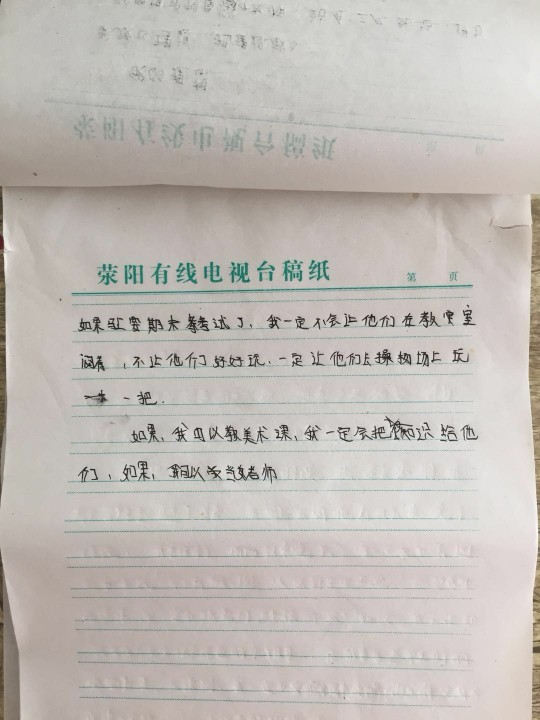 荥阳有线电视台稿纸
第 页
如果让要期末考试了，我一定不会让他们在教室
闷着，不让他们好好玩，一定让他们去操场上玩
一把.
如果，我可以教美术课，我一定会把知识给他
们，如果，我可以当老师